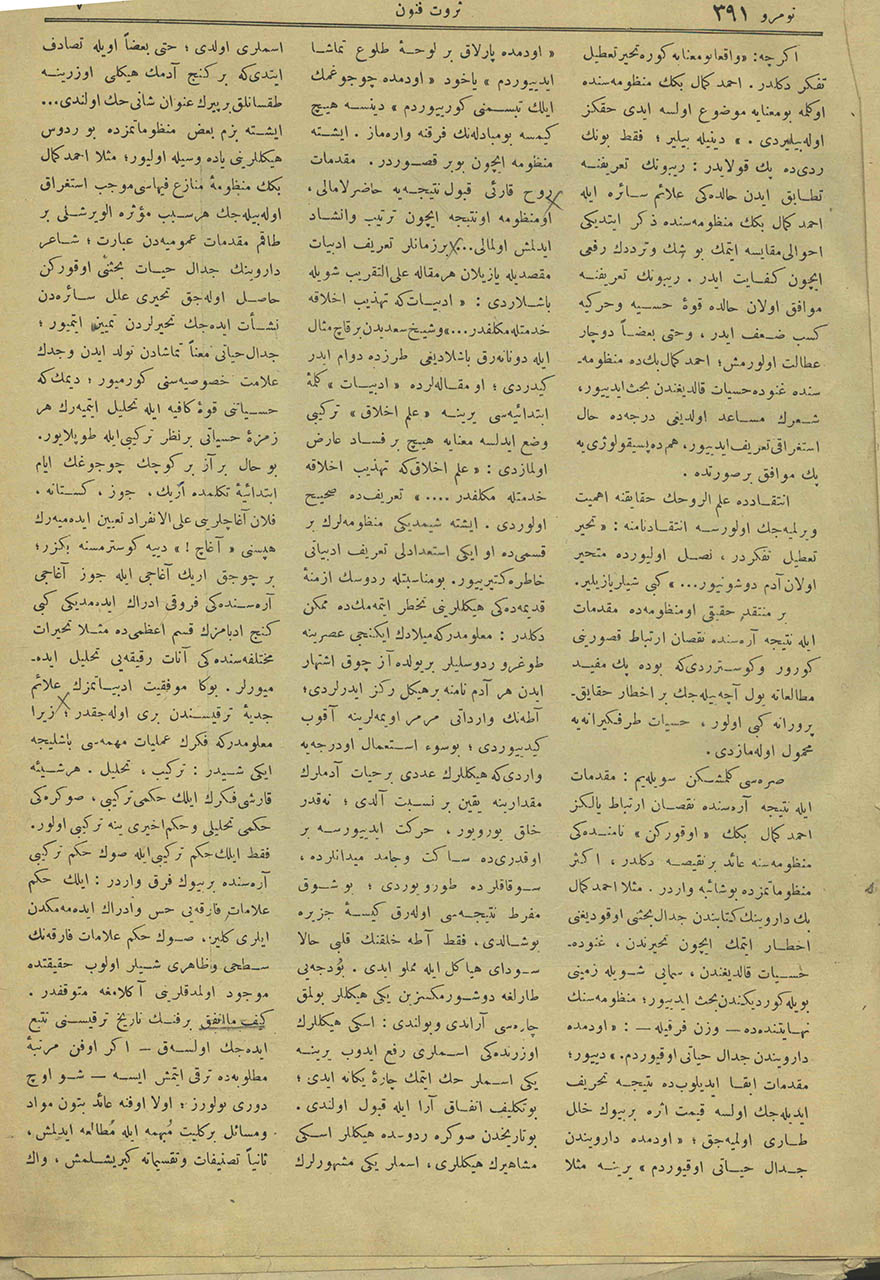 نومرو ٣٩١
ثروت فنون
٧
اكرچه: «واقعا بو معنايه كوره تحير تعطيل
تفكر دكلدر. احمد كمال بكك منظومه سنده
اوكله بومعنايه موضوع اولسه ايدى حقكز
اوله بيليردى.» دينيله بيلير؛ فقط بونك
ردى ده پك قولايدر: ريبونك تعريفنه
تطابق ايدن حالده كى علائم سائره ايله
احمد كمال بكك منظومه سنده ذكر ايتديكى
احوالى مقايسه ايتمك بو شك وترددك رفعى
ايچون كفايت ايدر. ريبونك تعريفنه
موافق اولان حالده قوۀ حسيه وحركيه
كسب ضعف ايدر، وحتى بعضاً دوچار
عطالت اولورمش؛ احمد كمال بك ده منظومه-
سنده غنوده حسيات قالديغندن بحث ايدييور،
شعرك مساعد اولديغى درجه ده حال
استغراقى تعريف ايدييور، هم ده پسيقولوژى يه
پك موافق بر صورتده.
انتقادده علم الروحك حقايقنه اهميت
ويرلميه جك اولورسه انتقادنامه: «تحير
تعطيل تفكردر، نصل اوليورده متحير
اولان آدم دوشونيور...» كبى شيلر يازيلير.
بر منتقد حقيقى او منظومه ده مقدمات
ايله نتيجه آره سنده نقصان ارتباط قصورينى
كورور وكوستررديكه بوده پك مفيد
مطالعاته يول آچه بيله جك بر اخطار حقايق-
پرورانه كبى اولور، حسيات طرفكيرانه يه
محمول اوله مازدى.
صره سى كلمشكن سويله يم: مقدمات
ايله نتيجه آره سنده نقصان ارتباط يالكز
احمد كمال بكك «اوقوركن» نامنده كى
منظومه سنه عائد بر نقيصه دكلدر، اكثر
منظوماتمزده بوشائبه واردر. مثلا احمد كمال
بك داروينك كتابندن جدال بحثنى اوقوديغنى
اخطار ايتمك ايچون تحيرندن، غنوده-
حسيات قالديغندن، سمايى شويله زمينى
بويله كورديكندن بحث ايدييور؛ منظومه سنك
نهايتنده ده — وزن فرقيله —: «اودمده
داروينـدن جدال حياتى اوقيوردم.» دييور؛
مقدمات ابقا ايديلوب ده نتيجه تحريف
ايديله جك اولسه قيمت اثره بر بيوك خلل
طارى اولميه جق؛ «اودمده داروينـدن
جدال حياتى اوقيوردم» يرينه مثلا
«اودمده پارلاق بر لوحۀ طلوع تماشا
ايدييوردم» ياخود «اودمده چوجوغمك
ايلك تبسمنى كورييوردم» دينسه هيچ
كيمسه بومبادله نك فرقنه واره ماز. ايشته
منظومه ايچون بو بر قصوردر. مقدمات
روح قارئى قبول نتيجه يه حاضرلامالى،
او منظومه او نتيجه ايچون ترتيب وانشاد
ايدلمش اولمالى... بر زمانلر تعريف ادبيات
مقصديله يازيلان هر مقاله على التقريب شويله
باشلاردى: «ادبيات كه تهذيب اخلاقه
خدمتله مكلفدر...» وشيخ سعديدن بر قاچ مثال
ايله دونانه رق باشلاديغى طرزده دوام ايدر
كيدردى؛ او مقاله لرده «ادبيات» كلمۀ
ابتدائيه سى يرينه «علم اخلاق» تركيبى
وضع ايدلسه معنايه هيچ بر فساد عارض
اولمازدى: «علم اخلاق كه تهذيب اخلاقه
خدمتله مكلفدر....» تعريف ده صحيح
اولوردى. ايشته شيمديكى منظومه لرك بر
قسمى ده او ايكى استعدادلى تعريف ادبياتى
خاطره كتيرييور. بومناسبتله ردوسك ازمنۀ
قديمه ده كى هيكللرينى تخطر ايتمه مك ده ممكن
دكلدر: معلومدركه ميلادك ايكنجى عصرينه
طوغرو ردوسليلر بر يولده آز چوق اشتهار
ايدن هر آدم نامنه بر هيكل ركز ايدرلردى؛
آطه نك وارداتى مرمر اويمه لرينه آقوب
كيدييوردى؛ بوسوء استعمال اودرجه يه
واردى كه هيكللرك عددى برحيات آدملرك
مقدارينه يقين بر نسبت آلدى؛ نه قدر
خلق يورويور، حركت ايدييورسه بر
اوقدرى ده ساكت وجامد ميدانلرده،
سوقاقلرده طورويوردى؛ بو شوق
مفرط نتيجه سى اوله رق كيسۀ جزيره
بوشالدى، فقط آطه خلقنك قلبى حالا
سوداى هياكل ايله مملو ايدى. بودجه يى
طارلغه دوشورمكسزين يكى هيكللر بولمق
چاره سى آراندى وبولندى: اسكى هيكللرك
اوزرنده كى اسملرى رفع ايدوب يرينه
يكى اسملر حك ايتمك چارۀ يكانه ايدى؛
بوتكليف اتفاق آرا ايله قبول اولندى.
بوتاريخدن صوكره ردوسده هيكللر اسكى
مشاهيرك هيكللرى، اسملر يكى مشهورلرك
اسملرى اولدى؛ حتى بعضاً اويله تصادف
ايتدى كه بر كنج آدمك هيكلى اوزرينه
طقسانلق بر پيرك عنوان شانى حك اولندى...
ايشته بزم بعض منظوماتمزده بو ردوس
هيكللرينى ياده وسيله اوليور؛ مثلا احمد كمال
بكك منظومۀ منازع فيهاسى موجب استغراق
اوله بيله جك هر سبب مؤثره الويرشلى بر
طاقم مقدمات عموميه دن عبارت؛ شاعر
داروينك جدال حيات بحثنى اوقوركن
حاصل اوله جق تحيرى علل سائره دن
نشأت ايده جك تحيرلردن تمييز ايتميور؛
جدال حياتى معناً تماشادن تولد ايدن وجدك
علامت خصوصيه سنى كورميور؛ ديمك كه
حسياتنى قوۀ كافيه ايله تحليل ايتميه رك هر
زمرۀ حسياتى بر نظر تركيبى ايله طوپلايور.
بو حال بر آز بر كوچك چوجوغك ايام
ابتدائيۀ تكلمده اريك، جوز، كستانه،
فلان آغاچلرينى على الانفراد تعيين ايده ميه رك
هپسنى «آغاج!» دييه كوسترمسنه بكزر؛
بر چوجق اريك آغاجى ايله جوز آغاجى
آره سنده كى فروقى ادراك ايده مديكى كبى
كنج ادبامزك قسم اعظمى ده مثلا تحيرات
مختلفه سنده كى آنات رقيقه يى تحليل ايده-
ميورلر. بوكا موفقيت ادبياتمزك علائم
جديۀ ترقيسندن برى اوله جقدر؛ زيرا
معلومدركه فكرك عمليات مهمه سى باشليجه
ايكى شيدر: تركيب، تحليل. هر شيئه
قارشى فكرك ايلك حكمى تركيبى، صوكره كى
حكمى تحليلى وحكم اخيرى ينه تركيبى اولور.
فقط ايلك حكم تركيبى ايله صوك حكم تركيبى
آره سنده بر بيوك فرق واردر: ايلك حكم
علامات فارقه يى حس وادراك ايده مه مكدن
ايلرى كلير، صوك حكم علامات فارقه نك
سطحى وظاهرى شيلر اولوب حقيقتده
موجود اولمدقلرينى آكلامغه متوقفدر.
كيف مااتفق بر فنك تاريخ ترقيسنى تتبع
ايده جك اولسه ق — اكر اوفن مرتبۀ
مطلوبه ده ترقى ايتمش ايسه — شو اوچ
دورى بولورز: اولا اوفنه عائد بتون مواد
ومسائل بر كليت مبهمه ايله مطالعه ايدلمش،
ثانياً تصنيفات وتقسيماته كيريشلمش، واك